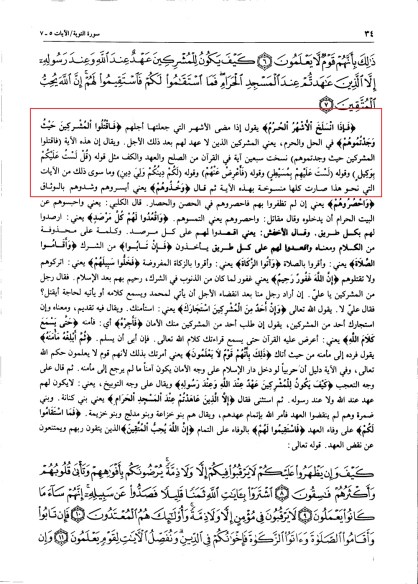 ٣٤ سورة التوبة/الآيات ٥ ـ ٧
ذَٰلِكَ بِأَنَّهُمْ قَوْمٌ لَّا يَعْلَمُونَ ٦ كَيْفَ يَكُونُ لِلْمُشْرِكِينَ عَهْدٌ عِندَ اللَّهِ وَعِندَ رَسُولِهِ
إِلَّا الَّذِينَ عَاهَدتُّمْ عِندَ الْمَسْجِدِ الْحَرَامِ فَمَا اسْتَقَامُوا لَكُمْ فَاسْتَقِيمُوا لَهُمْ إِنَّ اللَّهَ يُحِبُّ
الْمُتَّقِينَ ٧
﴿فَإِذَا انْسَلَخَ الأَشْهُرُ الحُرُمُ﴾ يقول إذا مضى الأشهر التي جعلتها أجلهم ﴿فَاقْتُلُوا المُشْرِكِينَ حَيْثُ
وَجَدْتُمُوهُمْ﴾ في الحل والحرم، يعني المشركين الذين لا عهد لهم بعد ذلك الأجل. ويقال إن هذه الآية (فاقتلوا
المشركين حيث وجدتموهم) نسخت سبعين آية في القرآن من الصلح والعهد والكف مثل قوله ﴿قُل لَسْتُ عَلَيْكُمْ
بِوَكِيلٍ﴾ وقوله ﴿لَسْتَ عَلَيْهِمْ بِمُسَيْطِرٍ﴾ وقوله ﴿فَأَعْرِضْ عَنْهُمْ﴾ وقوله ﴿لَكُمْ دِينُكُمْ وَلِيَ دِينِ﴾ وما سوى ذلك من الآيات
التي نحو هذا صارت كلها منسوخة بهذه الآية ثم قال ﴿وَخُذُوهُمْ﴾ يعني أيسروهم وشدوهم بالوثاق
﴿وَاحْصُرُوهُمْ﴾ يعني إن لم تظفروا بهم فاحصروهم في الحصن والحصار. قال الكلبي: يعني واحبسوهم عن
البيت الحرام أن يدخلوه وقال مقاتل: واحصروهم يعني التمسوهم. ﴿وَاقْعُدُوا لَهُمْ كُلَّ مَرْصَدٍ﴾ يعني: ارصدوا
لهم بكل طريق. وقال الأخفش: يعني اقعدوا لهم على كل مرصد. وكلمة على محذوفة
من الكلام ومعناه واقعدوا لهم على كل طريق يأخذون ﴿فَإِنْ تَابُوا﴾ من الشرك ﴿وَأَقَامُوا
الصَّلَاةَ﴾ يعني: وأقروا بالصلاة ﴿وَآتَوُا الزَّكَاةَ﴾ يعني: وأقروا بالزكاة المفروضة ﴿فَخَلُّوا سَبِيلَهُمْ﴾ يعني: اتركوهم
ولا تقتلوهم ﴿إِنَّ اللَّهَ غَفُورٌ رَحِيمٌ﴾ يعني غفور لما كان من الذنوب في الشرك، رحيم بهم بعد الإسلام. فقال رجل
من المشركين يا علي. إن أراد رجل منا بعد انقضاء الأجل أن يأتي لمحمد ويسمع كلامه أو يأتيه لحاجة أيقتل؟
فقال علي لا. يقول الله تعالى ﴿وَإِنْ أَحَدٌ مِنَ المُشْرِكِينَ اسْتَجَارَكَ﴾ يعني: استأمنك. ويقال فيه تقديم، ومعناه وإن
استجارك أحد من المشركين، يقول إن طلب أحد من المشركين منك الأمان ﴿فَأَجِرْهُ﴾ أي: فأمنه ﴿حَتَّى يَسْمَعَ
كَلَامَ اللَّهِ﴾ يعني: أعرض عليه القرآن حتى يسمع قراءتك كلام الله تعالى. فإن أبى أن يسلم. ﴿ثُمَّ أَبْلِغْهُ مَأْمَنَهُ﴾
يقول فرده إلى مأمنه من حيث أتاك ﴿ذَلِكَ بِأَنَّهُمْ قَوْمٌ لَا يَعْلَمُونَ﴾ يعني أمرتك بذلك لأنهم قوم لا يعلمون حكم الله
تعالى، وفي الآية دليل أن حربياً لو دخل دار الإسلام على وجه الأمان يكون آمناً ما لم يرجع إلى مأمنه. ثم قال على
وجه التعجب ﴿كَيْفَ يَكُونُ لِلْمُشْرِكِينَ عَهْدٌ عِنْدَ اللَّهِ وَعِنْدَ رَسُولِهِ﴾ ويقال على وجه التوبيخ، يعني: لا يكون لهم
عهد عند الله ولا عند رسوله. ثم استثنى فقال ﴿إِلَّا الَّذِينَ عَاهَدْتُمْ عِنْدَ المَسْجِدِ الحَرَامِ﴾ يعني بني كنانة. وبني
ضمرة وهم لم ينقضوا العهد فأمر الله بإتمام عهدهم، ويقال هم بنو خزاعة وبنو مدلج وبنو خزيمة. ﴿فَمَا اسْتَقَامُوا
لَكُمْ﴾ على وفاء العهد ﴿فَاسْتَقِيمُوا لَهُمْ﴾ بالوفاء على التمام ﴿إِنَّ اللَّهَ يُحِبُّ المُتَّقِينَ﴾ الذين يتقون ربهم ويمتنعون
عن نقض العهد. قوله تعالى:
كَيْفَ وَإِن يَظْهَرُوا عَلَيْكُمْ لَا يَرْقُبُوا فِيكُمْ إِلًّا وَلَا ذِمَّةً يُرْضُونَكُم بِأَفْوَاهِهِمْ وَتَأْبَىٰ قُلُوبُهُمْ
وَأَكْثَرُهُمْ فَاسِقُونَ ٨ اشْتَرَوْا بِآيَاتِ اللَّهِ ثَمَنًا قَلِيلًا فَصَدُّوا عَن سَبِيلِهِ إِنَّهُمْ سَاءَ مَا
كَانُوا يَعْمَلُونَ ٩ لَا يَرْقُبُونَ فِي مُؤْمِنٍ إِلًّا وَلَا ذِمَّةً وَأُولَٰئِكَ هُمُ الْمُعْتَدُونَ ١٠ فَإِن تَابُوا
وَأَقَامُوا الصَّلَاةَ وَآتَوُا الزَّكَاةَ فَإِخْوَانُكُمْ فِي الدِّينِ وَنُفَصِّلُ الْآيَاتِ لِقَوْمٍ يَعْلَمُونَ ١١ وَإِن